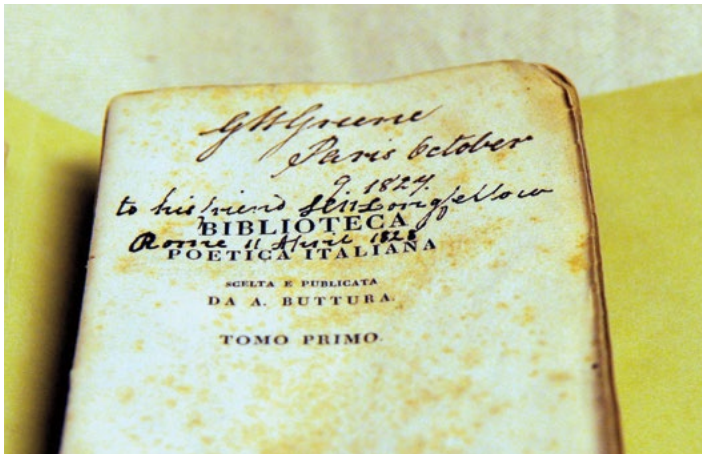 GWGreene
Paris October
9. 1827.
to his friend HWLongfellow
BIBLIOTECA
Rome 11 April 1828
POETICA ITALIANA
SCELTA E PUBLICATA
DA A. BUTTURA.
TOMO PRIMO.